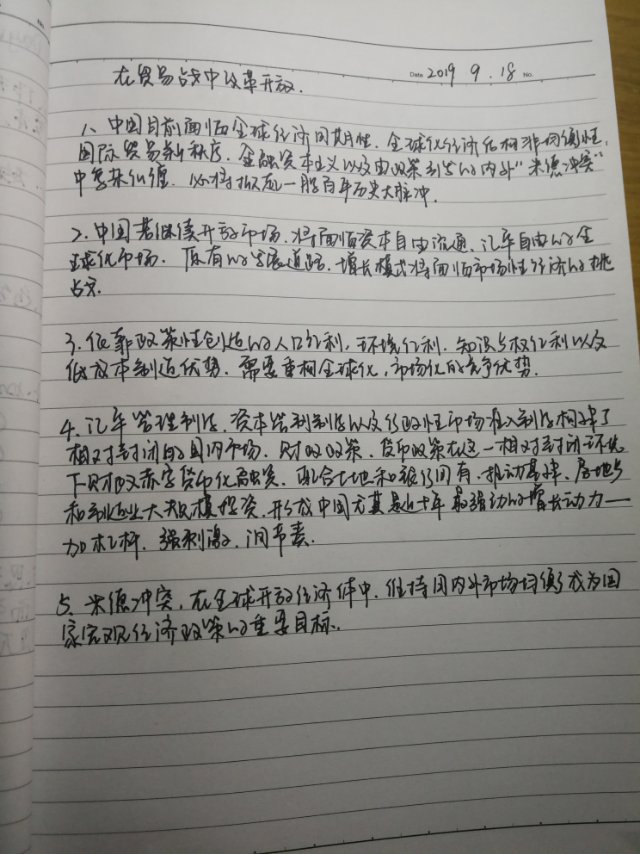 在贸易战中改革开放.
Date 2019 9.18 No.
1、中国目前面临全球经济周期性、全球化经济结构非均衡性,
国际贸易新秩序、金融资本主义以及由政策制造的内外"米德冲突"
中等 纠缠. 必将 一脏百年历史大脉冲.
2、中国若继续开放市场、将面临资本自由流通、汇率自由的全
球化市场. 原有的发展道路、增长模式将面临市场性经济的挑
战.
3、依靠政策性创造的人口红利、环境红利、知识与权红利以及
低成本制造优势、需要重构全球化,市场化的竞争优势.
4、汇率管理制度、资本管制制度以及行政性市场准入制度构建了
相对封闭的国内市场. 财政政策、货币政策在这一相对封闭环境
下财政赤字货币化融资、配合土地和银行国有、推动基建、房地产
和制造业大规模投资、形成中国尤其是近十年最强劲的增长动力——
加杠杆、强刺激、调节素.
5、米德冲突、在全球开放经济体中、维持国内外市场均衡成为国
家宏观经济政策的重要目标.